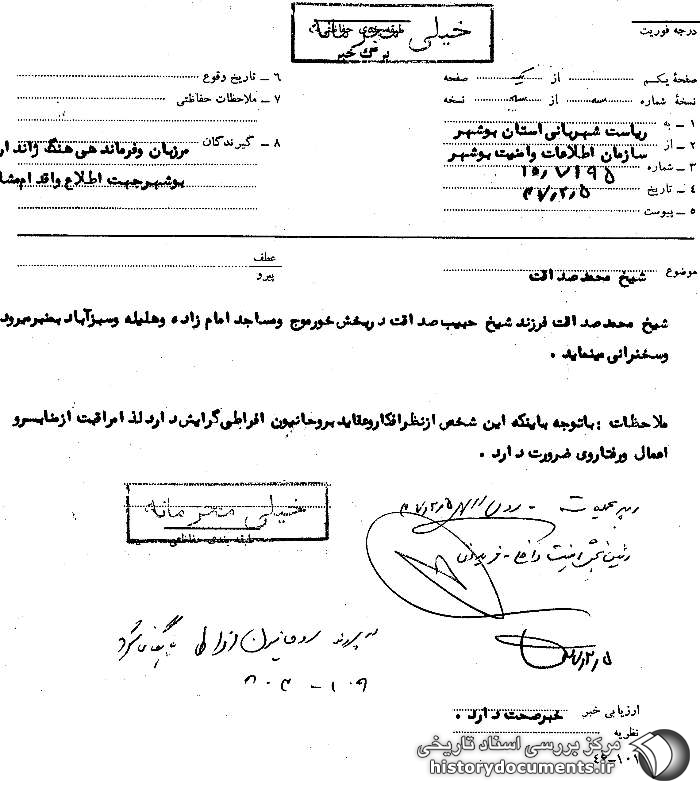 خیلی محرمانه
طبقه‌بندی حفاظتی
برگ خبر
درجه فوریت
صفحهٔ یکم از یک صفحه
نسخهٔ شماره سه از سه نسخه
۱ ـ به ریاست شهربانی استان بوشهر
۲ ـ از سازمان اطلاعات وامنیت بوشهر
۳ ـ شماره
۴ ـ تاریخ ۴۷٫۲٫۵
۵ ـ پیوست
۶ ـ تاریخ وقوع
۷ ـ ملاحظات حفاظتی
۸ ـ گیرندگان مرزبان وفرمانده هی هنگ ژاندار
بوشهر جهت اطلاع واقدام مشا
موضوع شیخ محمد صداقت
عطف
پیرو
شیخ محمد صداقت فرزند شیخ حبیب صداقت در بخش خورموج ومساجد امام زاده وهلیله وسبزآباد بمنبر میرود
وسخنرانی مینماید .
ملاحظات : باتوجه باینکه این شخص ازنظر افکاروعقاید بروحانیون افراطی گرایش دارد لذا مراقبت ازمنابرو
اعمال ورفتاروی ضرورت دارد .
خیلی محرمانه
طبقه بندی حفاظتی
رئیس بخش امنیت داخلی -
در پرونده روحانیون افراطی بایگانی شود
ارزیابی خبر خبر صحت دارد .
نظریه
۱۰۱-۴۶
مرکز بررسی اسناد تاریخی
historydocuments.ir